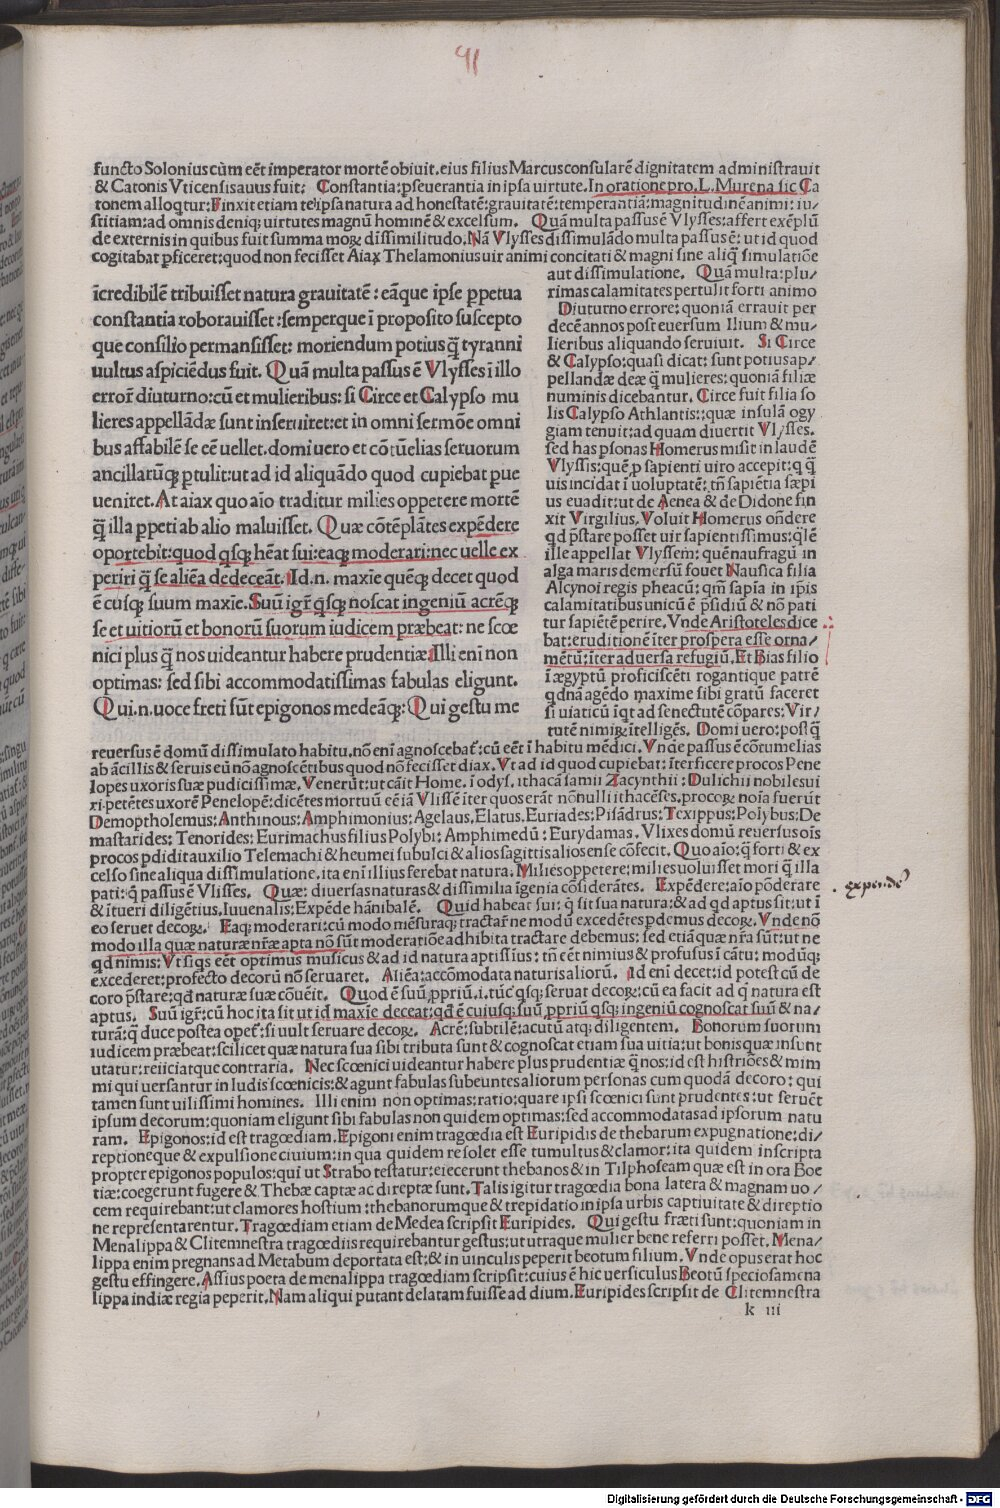 91
functo Solonius cùm eēt imperator mortē obiuit. eius filius Marcus consularē dignitatem administrauit
& Catonis Vticensis auus fuit: Constantia: pseuerantia in ipsa uirtute. In oratione pro. L. Murena sic Ca
tonem alloqtur: Finxit etiam te ipsa natura ad honestatē: grauitatē: temperantiā: magnitudinē animi: iu/
stitiam: ad omnis deniq; uirtutes magnū hominē & excelsum. Quā multa passus ē Vlysses: affert exēplū
de externis in quibus fuit summa moꝝ dissimilitudo. Nā Vlysses dissimulādo multa passus ē: ut id quod
cogitabat pficeret: quod non fecisset Aiax Thelamonius uir animi concitati & magni sine aliq̄ simulatiōe
aut dissimulatione. Quā multa: plu/
rimas calamitates pertulit forti animo
Diuturno errore: quoniā errauit per
decē annos post euersum Ilium & mu/
lieribus aliquando seruiuit. Si Circe
& Calypso: quasi dicat: sunt potius ap/
pellandæ deæ q̄ mulieres: quoniā filiæ
numinis dicebantur. Circe fuit filia so
lis Calypso Athlantis: quæ insulā ogy
giam tenuit: ad quam diuertit Vlysses.
sed has psonas Homerus misit in laudē
Vlyssis: quē p sapienti uiro accepit: q q̄
uis incidat ī uoluptatē: tn̄ sapiētia sæpi
us euadit: ut de Aenea & de Didone fin
xit Virgilius. Voluit Homerus on̄dere
qd pstare posset uir sapientissimus: q̄lē
ille appellat Vlyssem: quē naufragū in
alga maris demersū fouet Nausica filia
Alcynoi regis pheacū: qm̄ sapīa in ipīs
calamitatibus unicū ē psidiū & nō pati
tur sapiētē perire. Vnde Aristoteles dice
bat: eruditionē īter prospera esse orna/
mētū: īter aduersa refugiū. Et Bias filio
ī ægyptū proficiscēti rogantique patrē
qdnā agēdo maxime sibi gratū faceret
si uiaticū īqt ad senectutē cōpares: Vir/
tutē nimiꝝ ītelligēs. Domi uero: posq̄
īcredibilē tribuisset natura grauitatē: eāque ipse ppetua
constantia roborauisset: semperque ī proposito suscepto
que consilio permansisset: moriendum potius q̄ tyranni
uultus aspiciēdus fuit. Quā multa passus ē Vlysses ī illo
errore diuturno: cū et mulieribus: si Circe et Calypso mu
lieres appellādæ sunt inseruiret: et in omni sermōe omni
bus affabilē se eē uellet. domi uero et cōtūelias seruorum
ancillarūq; ptulit: ut ad id aliquādo quod cupiebat pue
ueniret. At aiax quo aīo traditur milies oppetere mortē
q̄ illa ppeti ab alio maluisset. Quæ cōtēplātes expēdere
oportebit: quod qsq; hēat sui: eaq; moderari: nec uelle ex
periri q̄ se aliēa dedeceāt. Id. n. maxīe quēq; decet quod
ē cuīsq; suum maxīe. Suū igr̄ qsq; noscat ingeniū acrēq;
se et uitiorū et bonorū suorum iudicem præbeat: ne scœ
nici plus q̄ nos uideantur habere prudentiæ Illi enī non
optimas: sed sibi accommodatissimas fabulas eligunt.
Qui. n. uoce freti sūt epigonos medeāq;: Qui gestu me
reuersus ē domū dissimulato habitu. nō enī agnoscebat: cū eēt ī habitu mēdici. Vnde passus ē cōtumelias
ab ācillis & seruis eū nō agnoscētibus quod nō fecisset diax. Vt ad id quod cupiebat: īterficere procos Pene
lopes uxoris suæ pudicissimæ. Venerūt: ut cāit Home. ī odys. ithacā samii Zacynthii: Dulichii nobiles ui
ri. petētes uxorē Penelopē: dicētes mortuū eē iā Vlissē īter quos erāt nōnulli ithacēses. procoꝝ noīa fuerūt
Demoptholemus: Anthinous: Amphimonius: Agelaus. Elatus. Euriades: Pisādrus: Texippus: Polybus: De
mastarides: Tenorides: Eurimachus filius Polybi: Amphimedū: Eurydamas. Vlixes domū reuersus oīs
procos pdidit auxilio Telemachi & heumei subulci & alios sagittis alios ense cōfecit. Quo aīo: q̄ forti & ex
celso sine aliqua dissimulatione. ita enī illius ferebat natura. Milies oppetere: milies uoluisset mori q̄ illa
pati: q̄ passus ē Vlisses. Quæ: diuersas naturas & dissimilia īgenia cōsiderātes. Expēdere: aīo pōderare
& ītueri diligētius. Iuuenalis: Expēde hānibalē. Quid habeat sui: q̄ sit sua natura: & ad qd aptus sit: ut ī
eo seruet decoꝝ. Eaq; moderari: cū modo mēsuraq; tractar̄ ne modū excedētes pdemus decoꝝ. Vnde nō
modo illa quæ naturæ nr̄æ apta nō sūt moderatiōe adhibita tractare debemus: sed etiā quæ nr̄a sūt: ut ne
qd nimis: Vt siqs eēt optimus musicus & ad id natura aptissius: tn̄ eēt nimius & profusus ī cātu: modūq;
excederet: profecto decorū nō seruaret. Aliēa: accōmodata naturis aliorū. Id enī decet: id potest cū de
coro pstare: qd naturæ suæ cōuēit. Quod ē suū, pprīū. i. tūc qsq; seruat decoꝝ: cū ea facit ad q natura est
aptus. Suū igr̄: cū hoc ita sit ut id maxīe deceat: qd ē cuiusq; suū, pprīū qsq; ingeniū cognoscat suū & na/
turā: q̄ duce postea opet: si uult seruare decoꝝ. Acrē: subtilē: acutū atq; diligentem. Bonorum suorum
iudicem præbeat: scilicet quæ natura sua sibi tributa sunt & cognoscat etiam sua uitia: ut bonis quæ insunt
utatur: reiiciatque contraria. Nec scœnici uideantur habere plus prudentiæ q̄ nos: id est histriōes & mim
mi qui uersantur in ludis scœnicis: & agunt fabulas subeuntes aliorum personas cum quodā decoro: qui
tamen sunt uilissimi homines. Illi enim non optimas: ratio: quare ipsi scœnici sunt prudentes: ut seruēt
ipsum decorum: quoniam eligunt sibi fabulas non quidem optimas: sed accommodatas ad ipsorum natu
ram. Epigonos: id est tragœdiam. Epigoni enim tragœdia est Euripidis de thebarum expugnatione: di/
reptioneque & expulsione ciuium: in qua quidem resolet esse tumultus & clamor: ita quidem inscripta
propter epigonos populos: qui ut Strabo testatur: eiecerunt thebanos & in Tilphoseam quæ est in ora Boe
tiæ: coegerunt fugere & Thebæ captæ ac direptæ sunt. Talis igitur tragœdia bona latera & magnam uo/
cem requirebant: ut clamores hostium: thebanorumque & trepidatio in ipsa urbis captiuitate & direptio
ne representarentur. Tragœdiam etiam de Medea scripsit Euripides. Qui gestu fræti sunt: quoniam in
Menalippa & Clitemnestra tragœdiis requirebantur gestus: ut utraque mulier bene referri posset. Mena/
lippa enim pregnans ad Metabum deportata est: & in uinculis peperit beotum filium. Vnde opus erat hoc
gestu effingere. Assius poeta de menalippa tragœdiam scripsit: cuius ē hic uersiculus Beotū speciosa mena
lippa indiæ regia peperit. Nam aliqui putant delatam fuisse ad dium. Euripides scripsit de Clitemnestra
k iii
expende
Digitalisierung gefördert durch die Deutsche Forschungsgemeinschaft - DFG